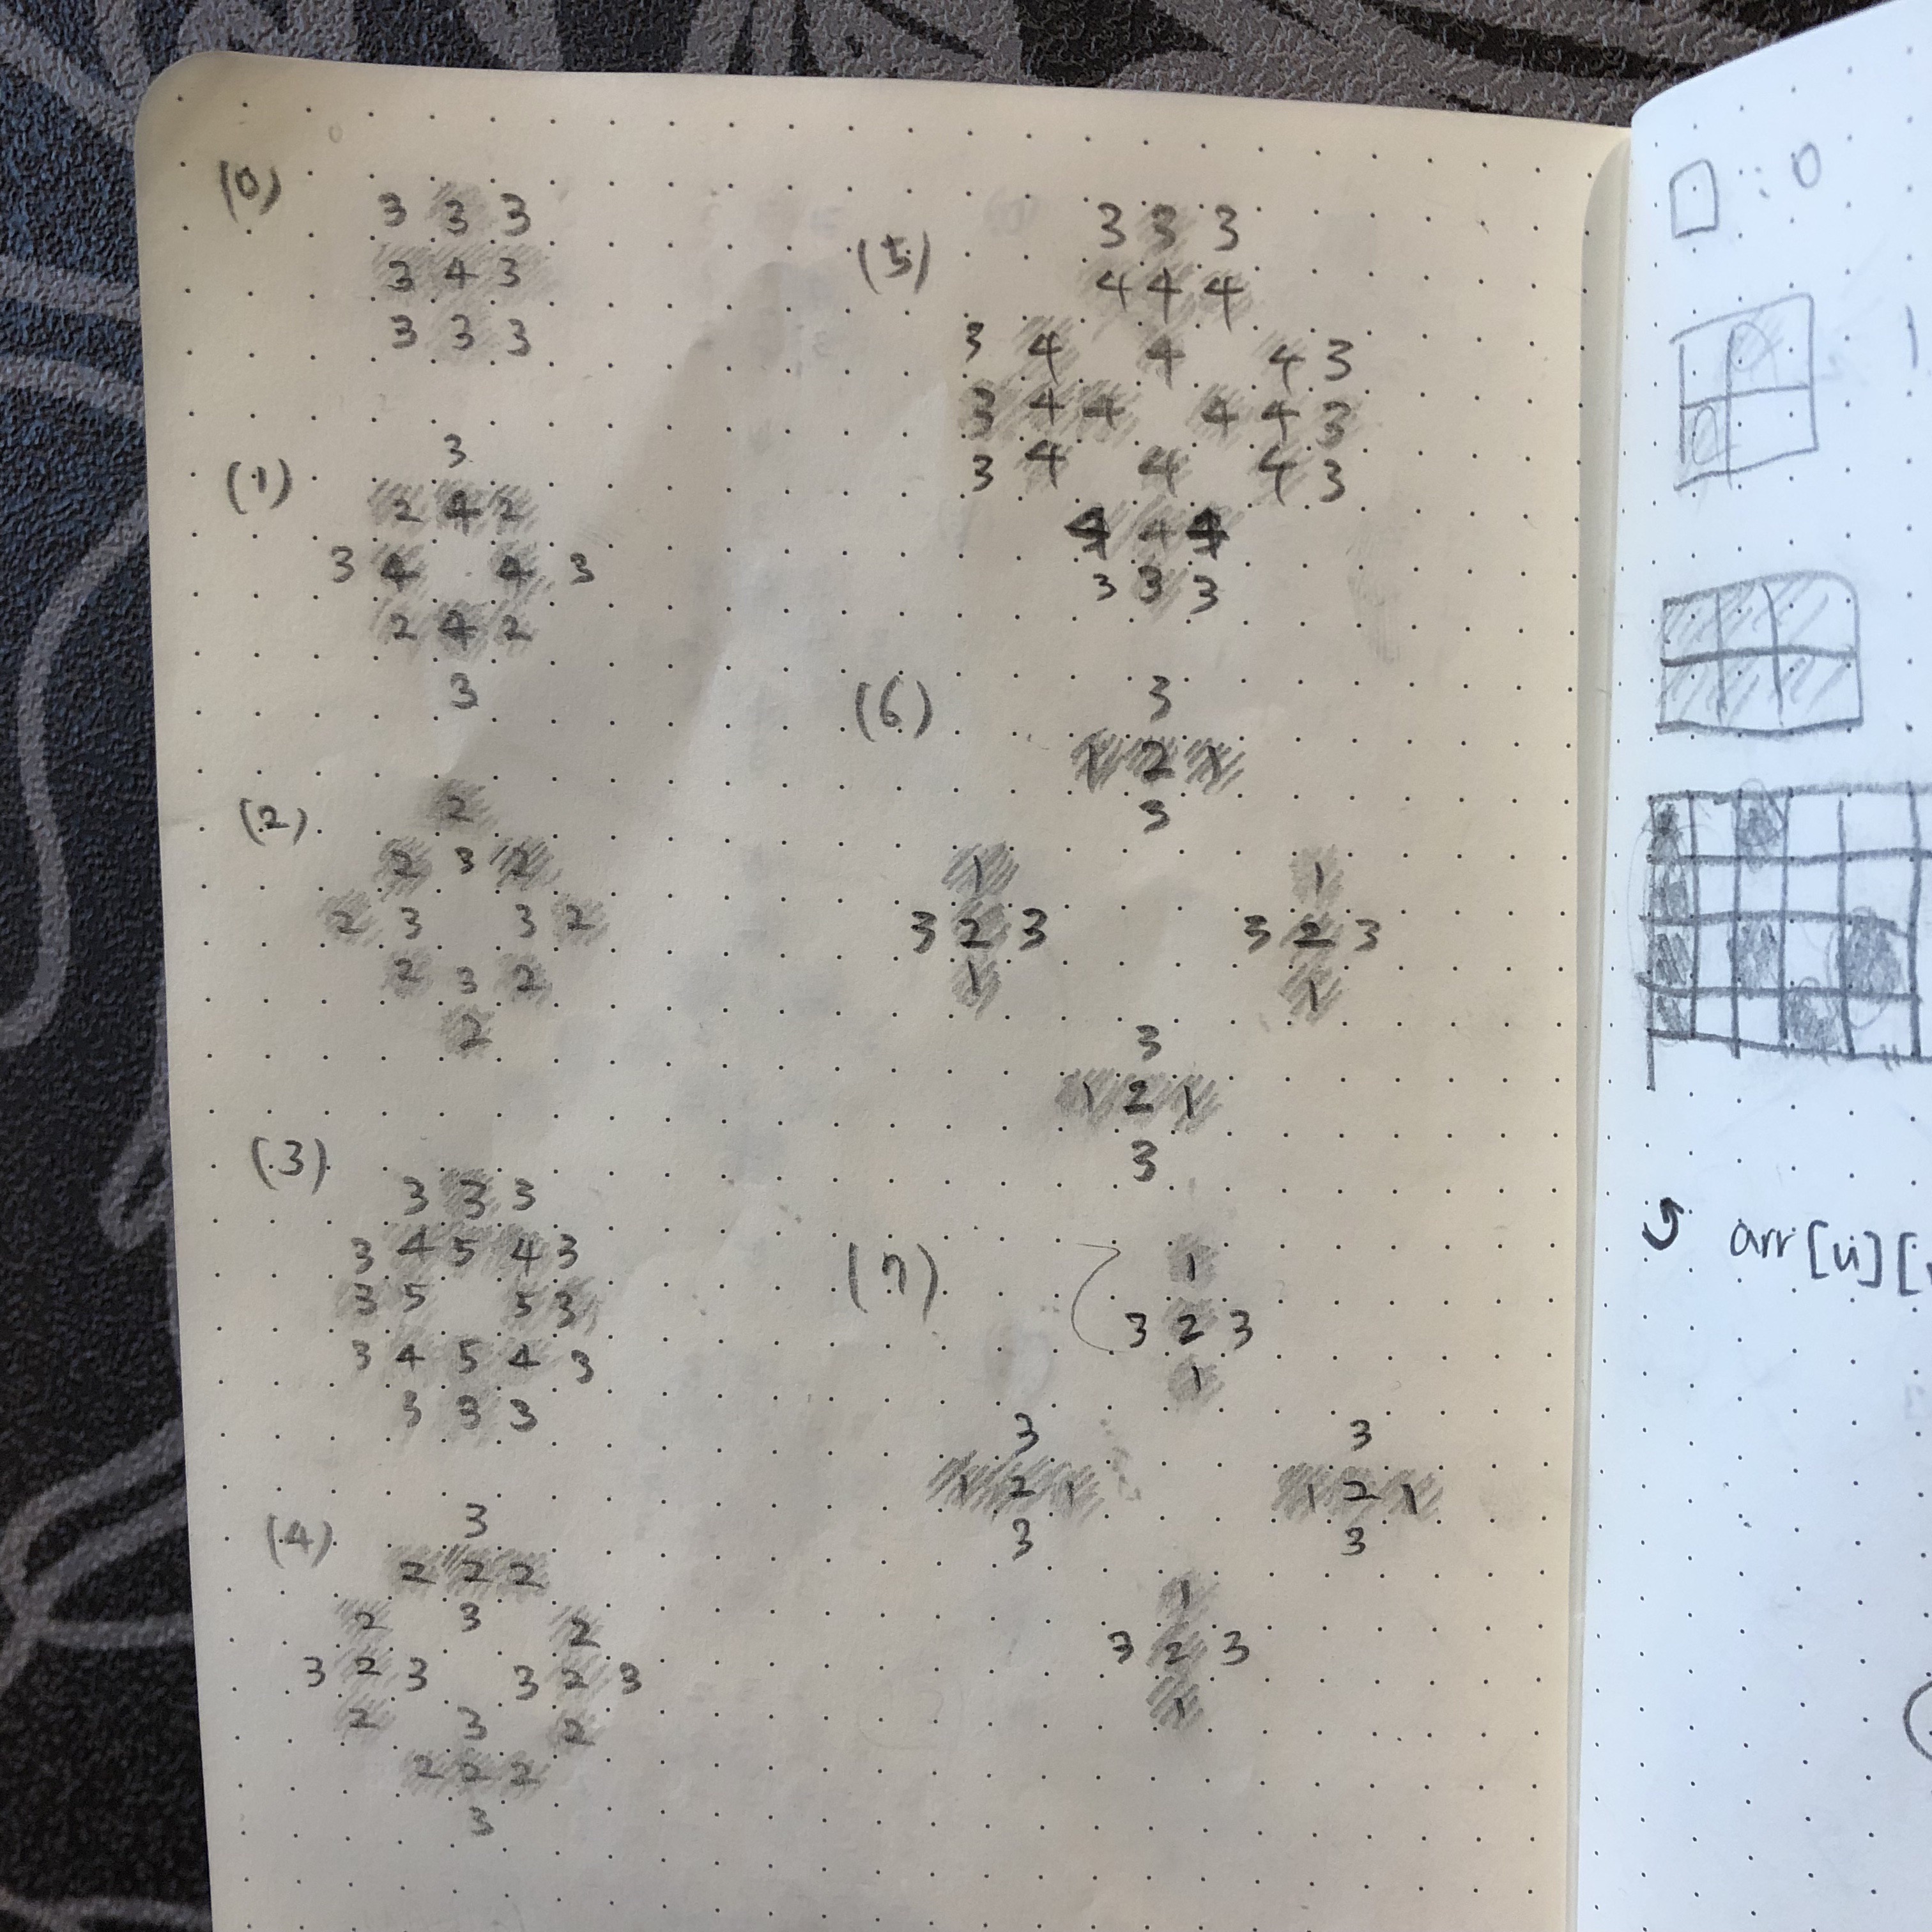 (0)
3 3 3
3 4 3
3 3 3
(1)
3
2 4 2
3 4 4 3
2 4 2
3
(2)
2
2 3 2
2 3 3 2
2 3 2
2
(3)
3 3 3
3 4 5 4 3
3 5 5 3
3 4 5 4 3
3 3 3
(4)
3
2 2 2
2 3 2
3 2 3 3 2 3
2 3 2
2 2 2
3
(5)
3 3 3
4 4 4
3 4 4 4 3
3 4 4 4 4 3
3 4 4 4 3
4 4 4
3 3 3
(6)
3
1 2 1
3
1 1
3 2 3 3 2 3
1 1
3
1 2 1
3
(7)
1
3 2 3
1
3 3
1 2 1 1 2 1
3 3
1
3 2 3
1
□ : 0
arr[u][